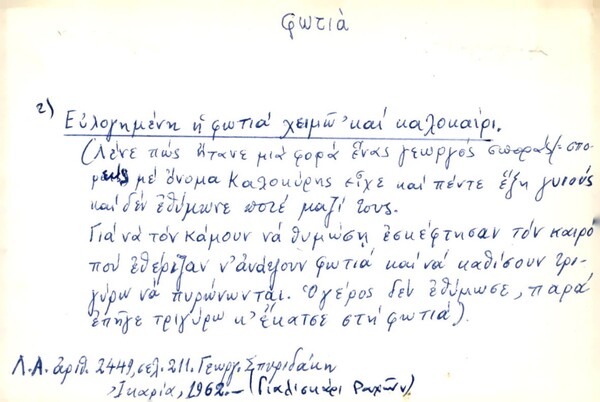 φωτιὰ
2) Εὐλογημένη ἡ φωτιά χειμῶ' καί καλοκαίρι.
(Λένε πώς ἤτανε μιά φορά ἕνας γεωργός σποράς/=σπο-
ρεύς μέ ὄνομα Καλοκύρης εἶχε καί πέντε ἕξη γυιούς
καί δέν ἐθύμωνε ποτέ μαζί τους.
Γιά νά τόν κάμουν νά θυμώση ἐσκέφτησαν τόν καιρό
πού ἐθέριζαν ν'ἀνάψουν φωτιά καί νά καθίσουν τρι-
γύρω νά πυρώνωνται. Ὁ γέρος δέν ἐθύμωσε, παρά
ἐπῆγε τριγύρω κ' ἔκατσε στή φωτιά).
Λ.Α. ἀριθ. 2449, σελ. 211. Γεωργ. Σπυριδάκη
Ἰκαρία, 1962.– (Γιαλισκάρι Ραχῶν).